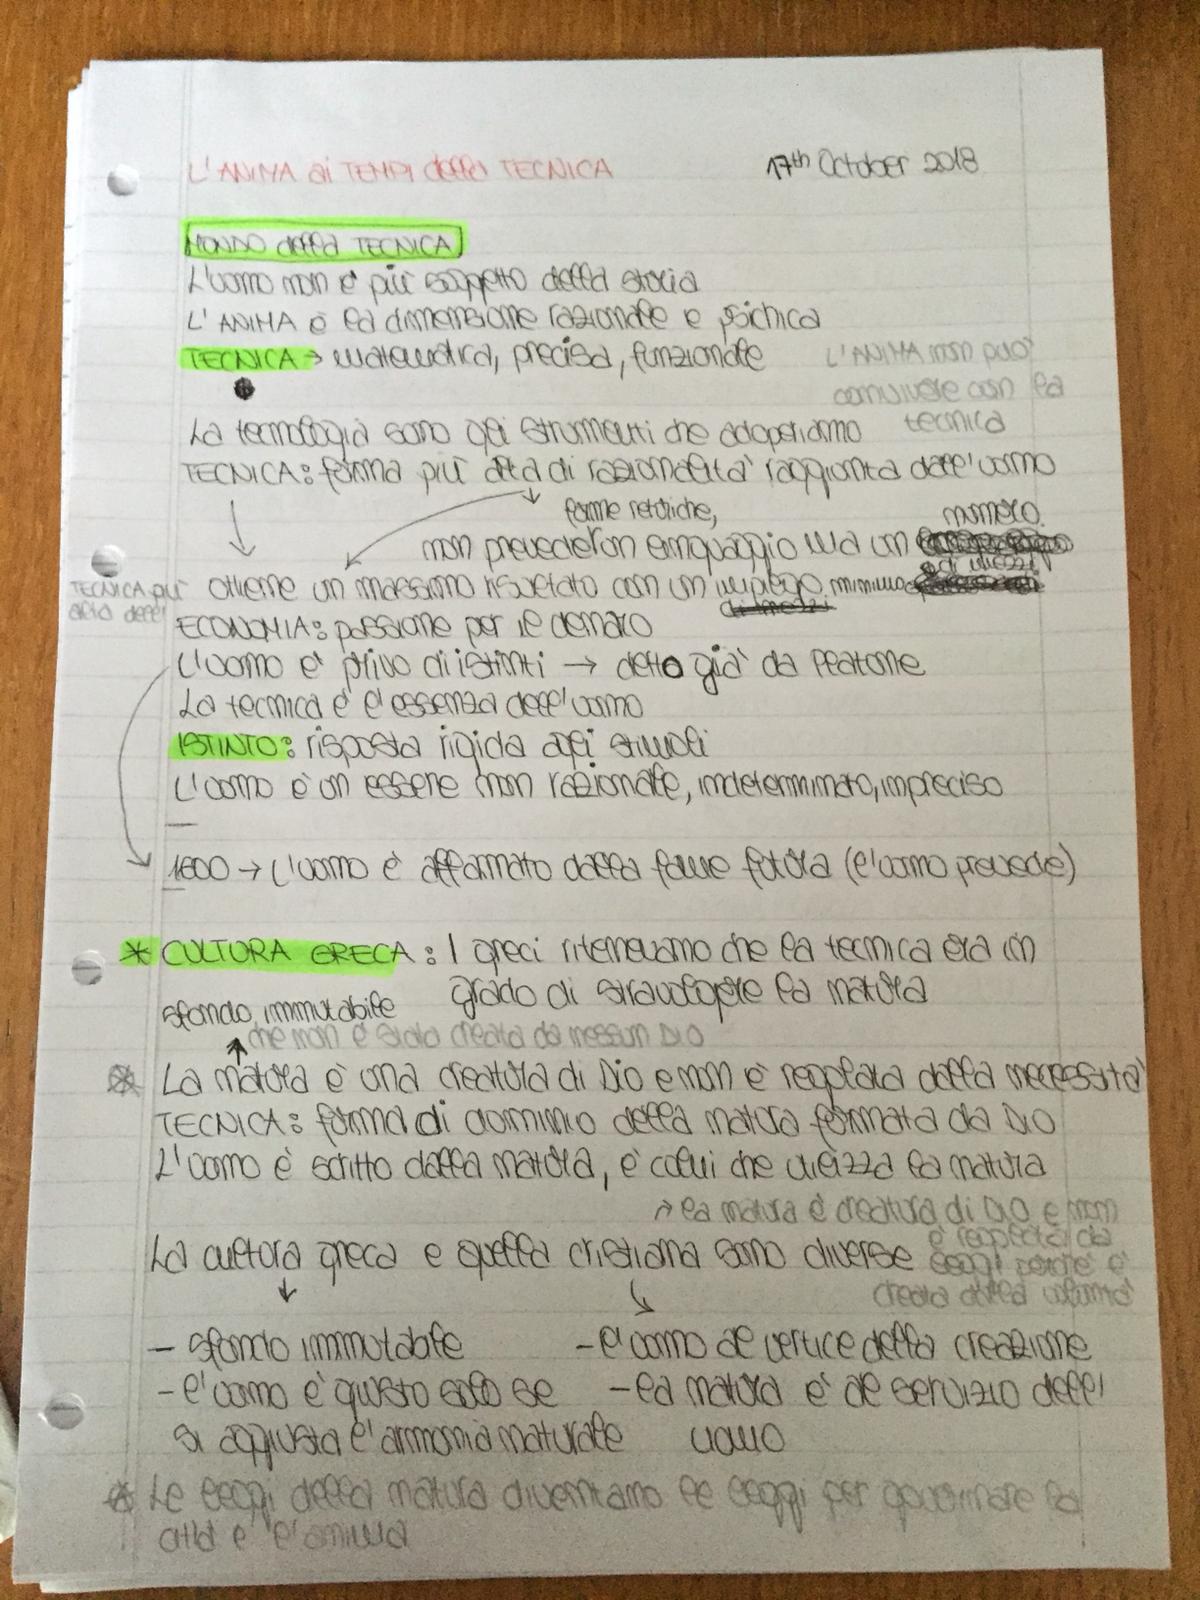 L'ANIMA ai TEMPI della TECNICA
17th October 2018
MONDO della TECNICA
L'uomo non è più soggetto della storia
L'ANIMA è la dimensione razionale e psichica
TECNICA → matematica, precisa, funzionale
L'ANIMA non può
convivere con la
tecnica
La tecnologia sono gli strumenti che adoperiamo
TECNICA: forma più alta di razionalità raggiunta dall'uomo
forme retoriche,
numero.
non prevede un linguaggio ma un
di mezzi
ottiene un massimo risultato con un impiego minimo
di mezzi
TECNICA più
alta dell'
ECONOMIA: passione per il denaro
L'uomo è privo di istinti → detto già da Platone
La tecnica è l'essenza dell'uomo
ISTINTO: risposta rigida agli stimoli
L'uomo è un essere non razionale, indeterminato, impreciso
1600 → L'uomo è affamato dalla fame futura (l'uomo prevede)
* CULTURA GRECA: I greci ritenevano che la tecnica era in
grado di stravolgere la natura
sfondo immutabile
che non è stata creata da nessun DIO
* La natura è una creatura di Dio e non è regolata dalla necessità
TECNICA: forma di dominio della natura formata da DIO
L'uomo è scritto dalla natura, è colui che utilizza la natura
→ la natura è creatura di DIO e non
è regolata da
leggi perché è
creata dalla volontà
La cultura greca e quella cristiana sono diverse
↓ ↘
- sfondo immutabile
- l'uomo al vertice della creazione
- l'uomo è giusto solo se
- la natura è al servizio dell'
si aggiusta l'armonia naturale
uomo
* Le leggi della natura diventano le leggi per governare la
città e l'anima